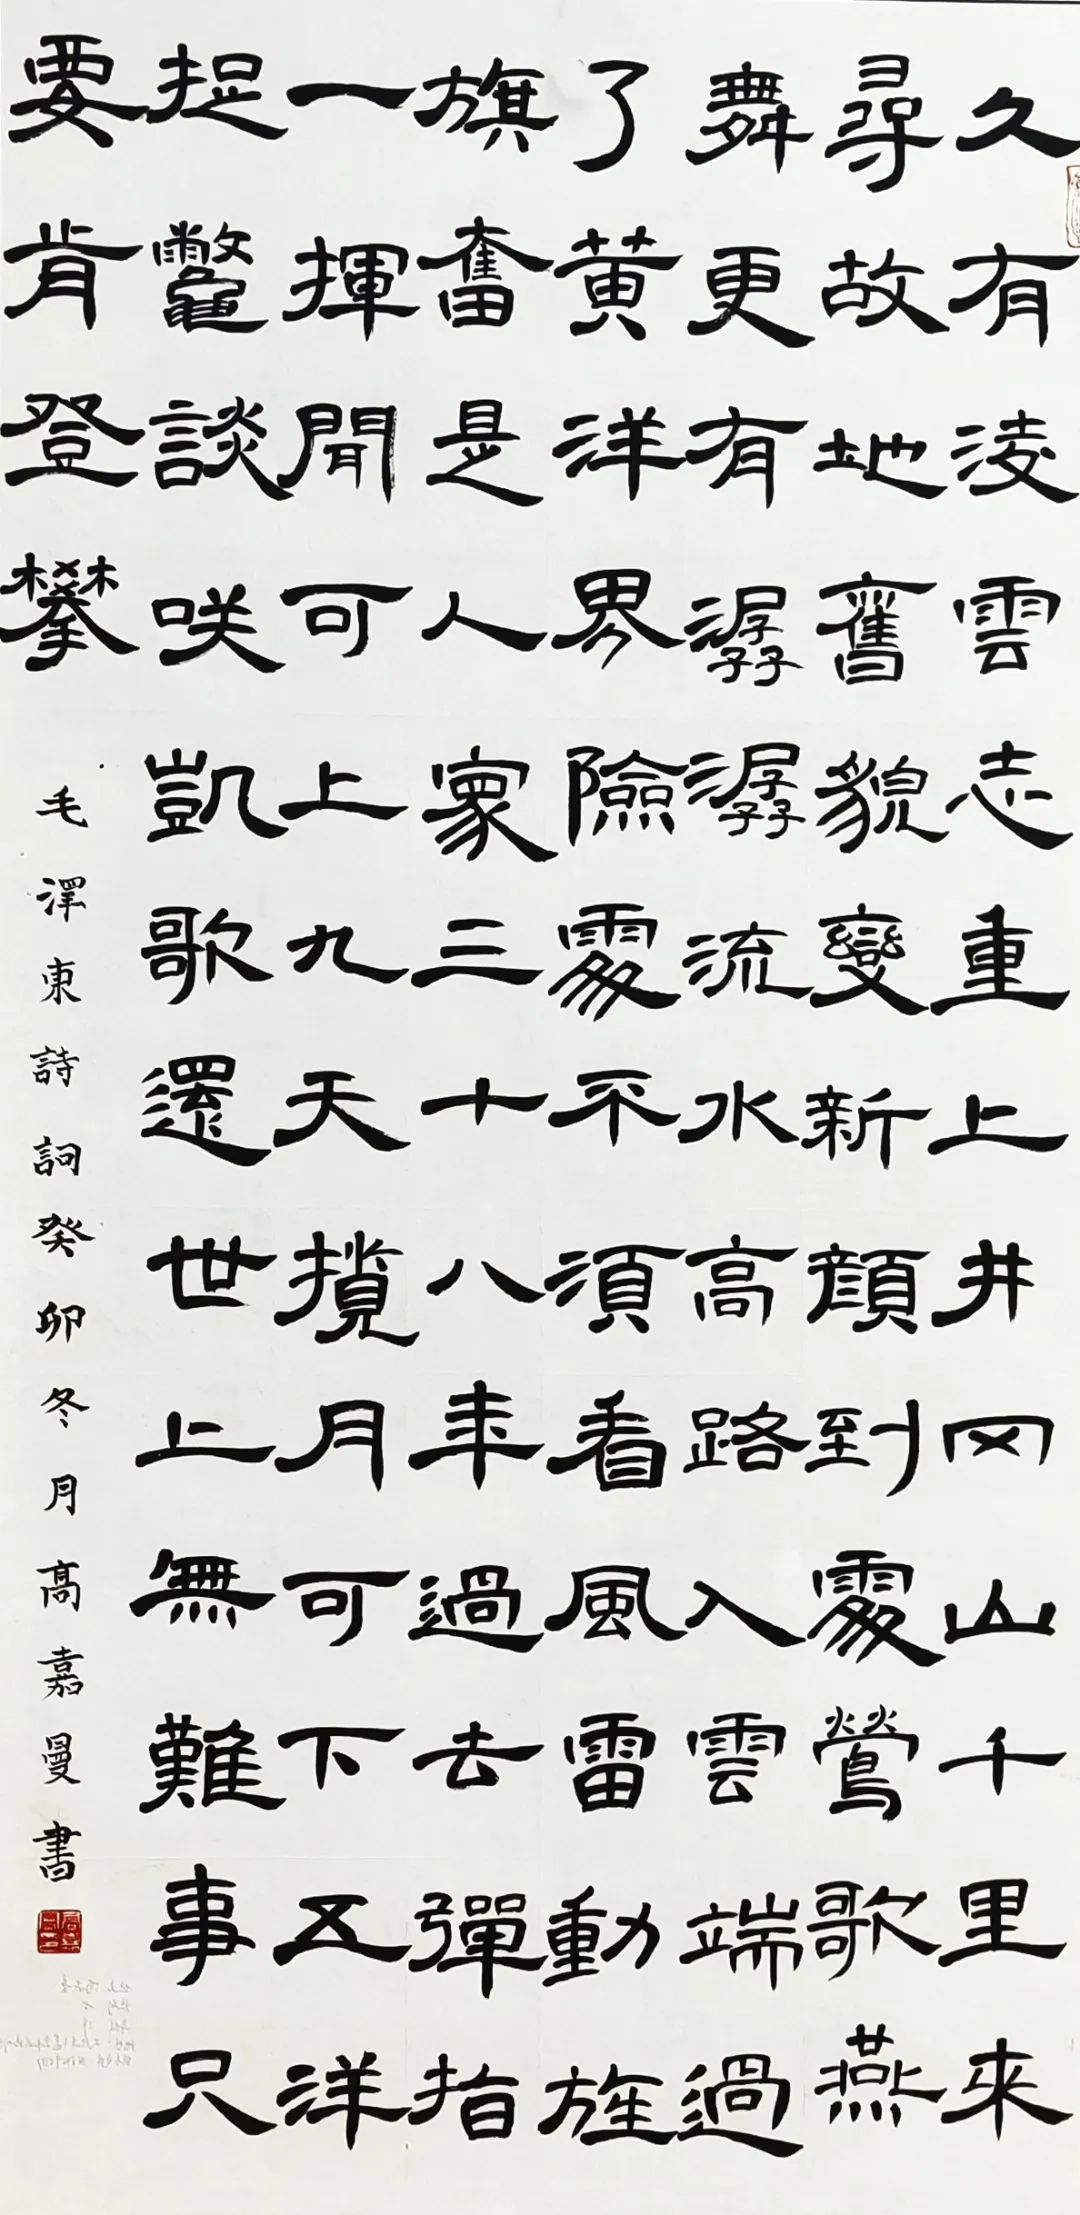 久有淩雲志重上井冈山千里來
尋故地舊貌變新顏到處鶯歌燕
舞更有潺潺流水高路入雲端過
了黃洋界險處不須看風雷動旌
旗奮是人寰三十八年過去彈指
一揮閒可上九天攬月可下五洋
捉鼈談咲凱歌還世上無難事只
要肯登攀
毛澤東詩詞癸卯冬月高嘉曼書